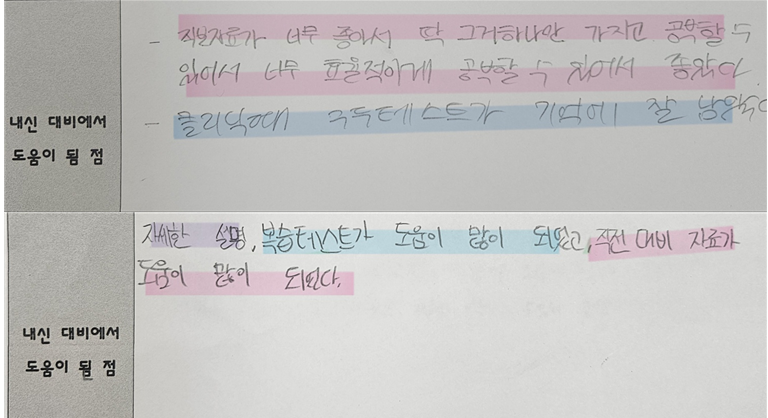 내신 대비에서
도움이 될 점
- 직보자료가 너무 좋아서 딱 그거하나만 가지고 공부할 수
있어서 너무 효율적이게 공부할 수 있어서 좋았다.
- 클리닉때 구두테스트가 기억에 잘 남았다
내신 대비에서
도움이 될 점
자세한 설명, 복습테스트가 도움이 많이 되었고, 직전 대비 자료가
도움이 많이 되었다.